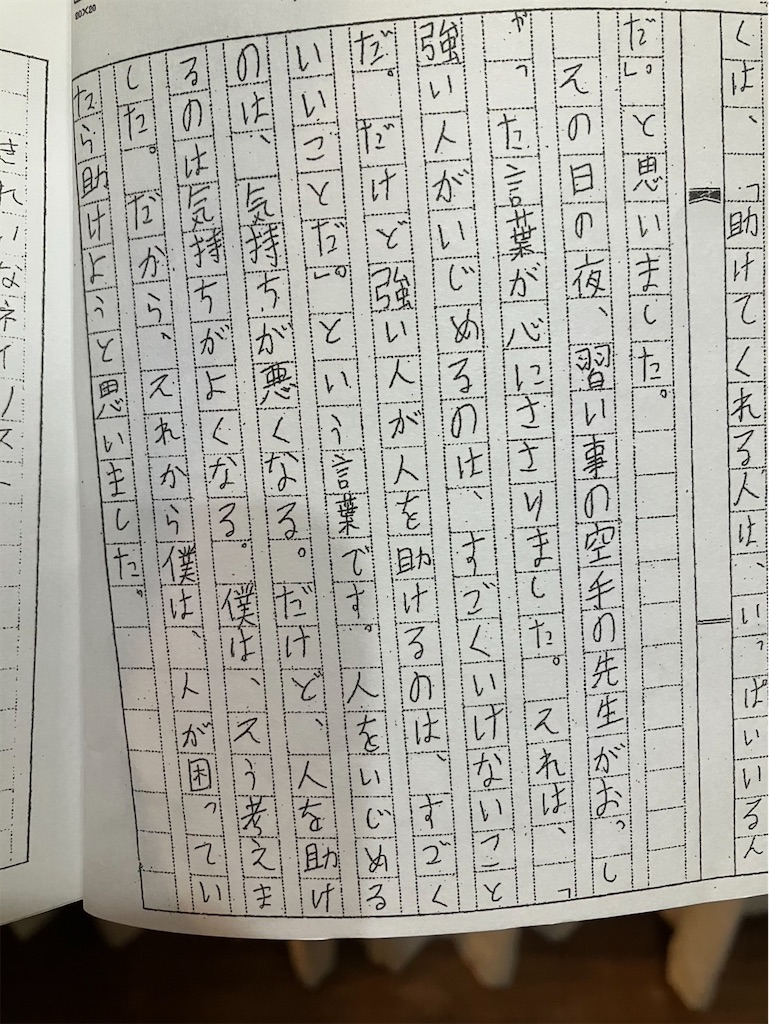 20×20
くは、「助けてくれる人は、いっぱいいるん
だ」。と思いました。
その日の夜、習い事の空手の先生がおっし
ゃった言葉が心にささりました。それは、「
強い人がいじめるのは、すごくいけないこと
だ。だけど強い人が人を助けるのは、すごく
いいことだ」。という言葉です。人をいじめる
のは、気持ちが悪くなる。だけど、人を助け
るのは気持ちがよくなる。僕は、そう考えま
した。だから、それから僕は、人が困ってい
たら助けようと思いました。
きれいな